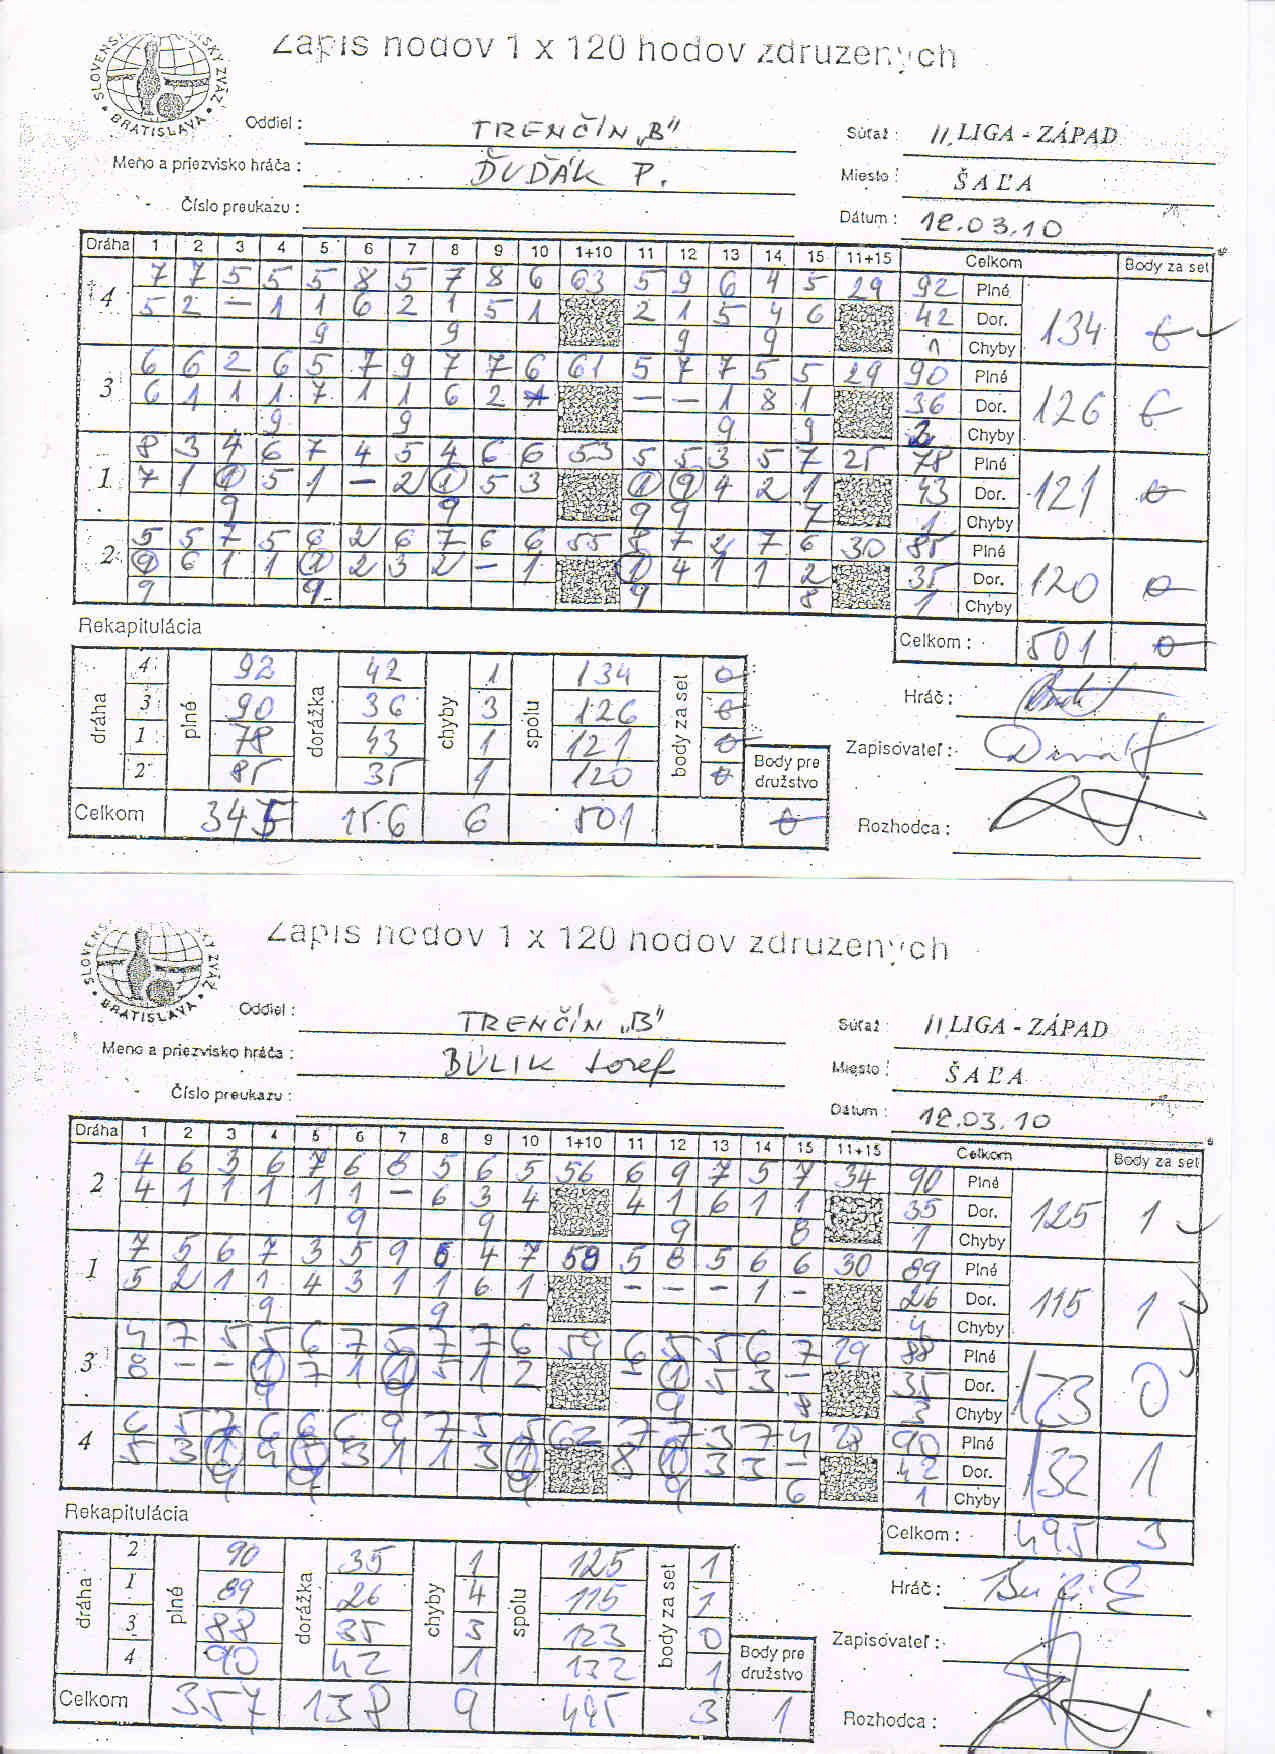 SLOVENSKÝ ZVÄZ • BRATISLAVA •
Zápis hodov 1 x 120 hodov združených
Oddiel : TRENČÍN „B" Súťaž : II. LIGA - ZÁPAD
Meno a priezvisko hráča : ĎUĎÁK P. Miesto : ŠAĽA
Číslo preukazu : Dátum : 12.03.10
Dráha 1 2 3 4 5 6 7 8 9 10 1+10 11 12 13 14 15 11+15 Celkom Body za set
4 7 7 5 5 5 8 5 7 8 6 63 5 9 6 4 5 29 92 Plné
5 2 – 1 1 6 2 1 5 1 2 1 5 4 6 42 Dor. 134 0
9 9 9 9 1 Chyby
3 6 6 2 6 5 7 9 7 7 6 61 5 7 7 5 5 29 90 Plné
6 1 1 1 7 1 1 6 2 – – 1 8 1 36 Dor. 126 0
9 9 9 9 3 Chyby
1 8 3 4 6 7 4 5 4 6 6 53 5 5 3 5 7 25 78 Plné
7 1 1 5 1 – 2 1 5 3 1 9 4 2 1 43 Dor. 121 0
9 9 9 9 7 1 Chyby
2 5 5 7 5 6 2 6 7 6 6 55 8 7 2 7 6 30 85 Plné
9 6 1 1 1 2 3 2 – 1 1 4 1 1 2 35 Dor. 120 0
9 9 9 8 1 Chyby
Rekapitulácia Celkom : 501 0
dráha plné dorážka chyby spolu body za set
4 92 42 1 134 0
3 90 36 3 126 0
1 78 43 1 121 0
2 85 35 1 120 0
Body pre družstvo
Celkom 345 156 6 501 0
Hráč :
Zapisovateľ :
Rozhodca :
SLOVENSKÝ ZVÄZ • BRATISLAVA •
Zápis hodov 1 x 120 hodov združených
Oddiel : TRENČÍN „B" Súťaž : II. LIGA - ZÁPAD
Meno a priezvisko hráča : BÚLIK Jozef Miesto : ŠAĽA
Číslo preukazu : Dátum : 12.03.10
Dráha 1 2 3 4 5 6 7 8 9 10 1+10 11 12 13 14 15 11+15 Celkom Body za set
2 4 6 3 6 7 6 8 5 6 5 56 6 9 7 5 7 34 90 Plné
4 1 1 1 1 1 – 6 3 4 4 1 6 1 1 35 Dor. 125 1
9 9 9 8 1 Chyby
1 7 5 6 7 3 5 9 6 4 7 59 5 8 5 6 6 30 89 Plné
5 2 1 1 4 3 1 1 6 1 – – – 1 – 26 Dor. 115 1
9 9 4 Chyby
3 4 7 5 5 6 7 5 7 7 6 59 6 5 5 6 7 29 88 Plné
8 – – 1 7 1 1 5 1 2 – 1 5 3 – 35 Dor. 123 0
9 9 9 8 3 Chyby
4 6 5 7 6 6 6 9 7 5 5 62 7 7 3 7 4 28 90 Plné
5 3 1 4 3 1 1 3 1 8 1 3 3 – 42 Dor. 132 1
9 9 9 9 6 1 Chyby
Rekapitulácia Celkom : 495 3
dráha plné dorážka chyby spolu body za set
2 90 35 1 125 1
1 89 26 4 115 1
3 88 35 3 123 0
4 90 42 1 132 1
Body pre družstvo
Celkom 357 138 9 495 3 1
Hráč :
Zapisovateľ :
Rozhodca :